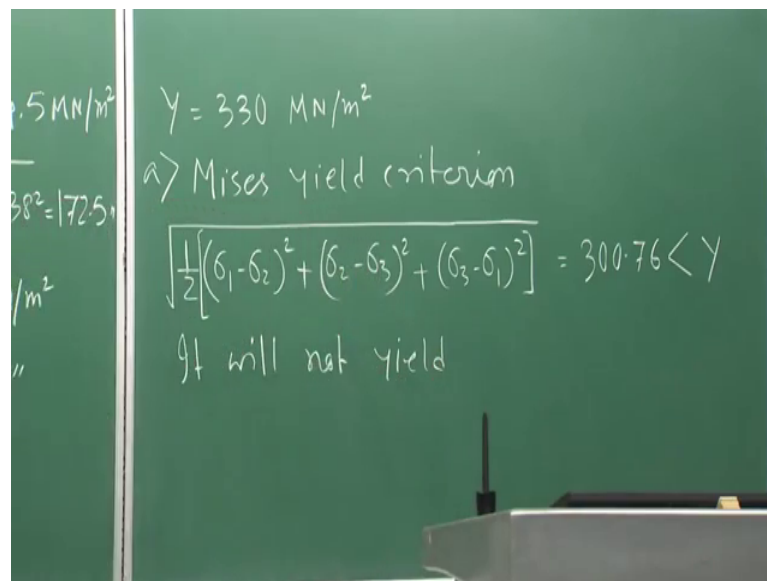 .5 MN/m²
38² = 172.5
/m²
"
Y = 330 MN/m²
a) Mises yield criterion
√(½[(σ₁-σ₂)² + (σ₂-σ₃)² + (σ₃-σ₁)²]) = 300.76 < Y
It will not yield